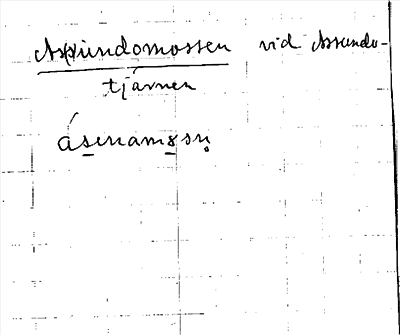 Assundomossen vid Assundo-
tjärnen
ásunamɔsn̥